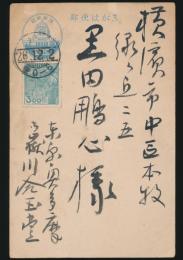 郵便はがき
横濱市中区本牧
緑ヶ丘二五
黒田鵬心様
東京奥多摩
川合玉堂
28.12.2
3.00